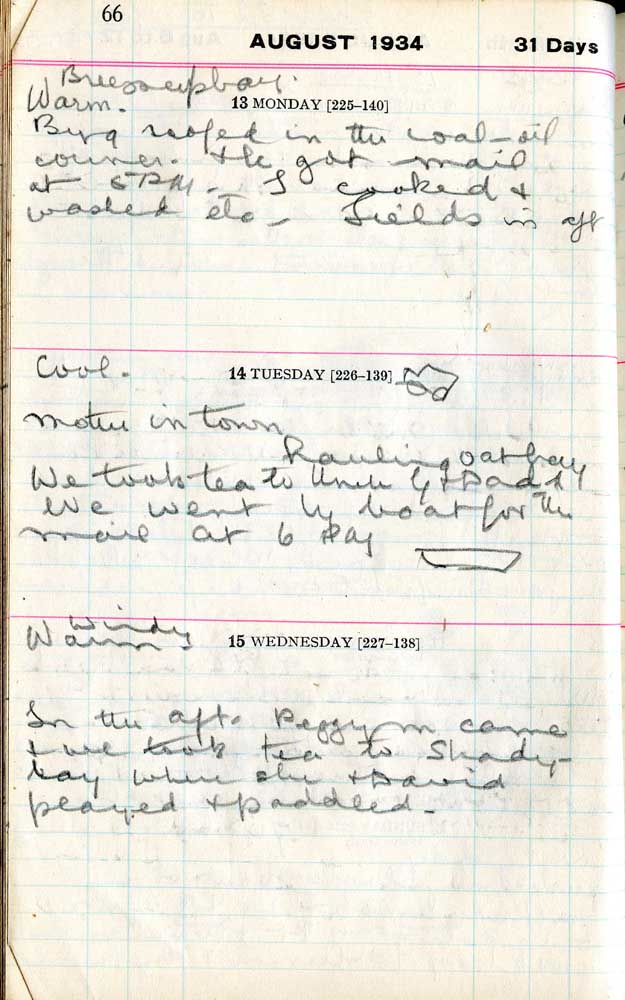 66
AUGUST 1934 31 Days
Warm.
13 MONDAY [225–140]
roofed in the coal-oil
corner. He got mail
at 5 P.M. I cooked &
washed etc - Fields in aft
Cool.
14 TUESDAY [226–139]
Mother in town
Hauling oat hay
We took tea to Uncle G & Dad
We went by boat for the
mail at 6
Windy
Warm
15 WEDNESDAY [227–138]
In the aft. Peggy M came
& we took tea to Shady-
bay where she & David
played & paddled.